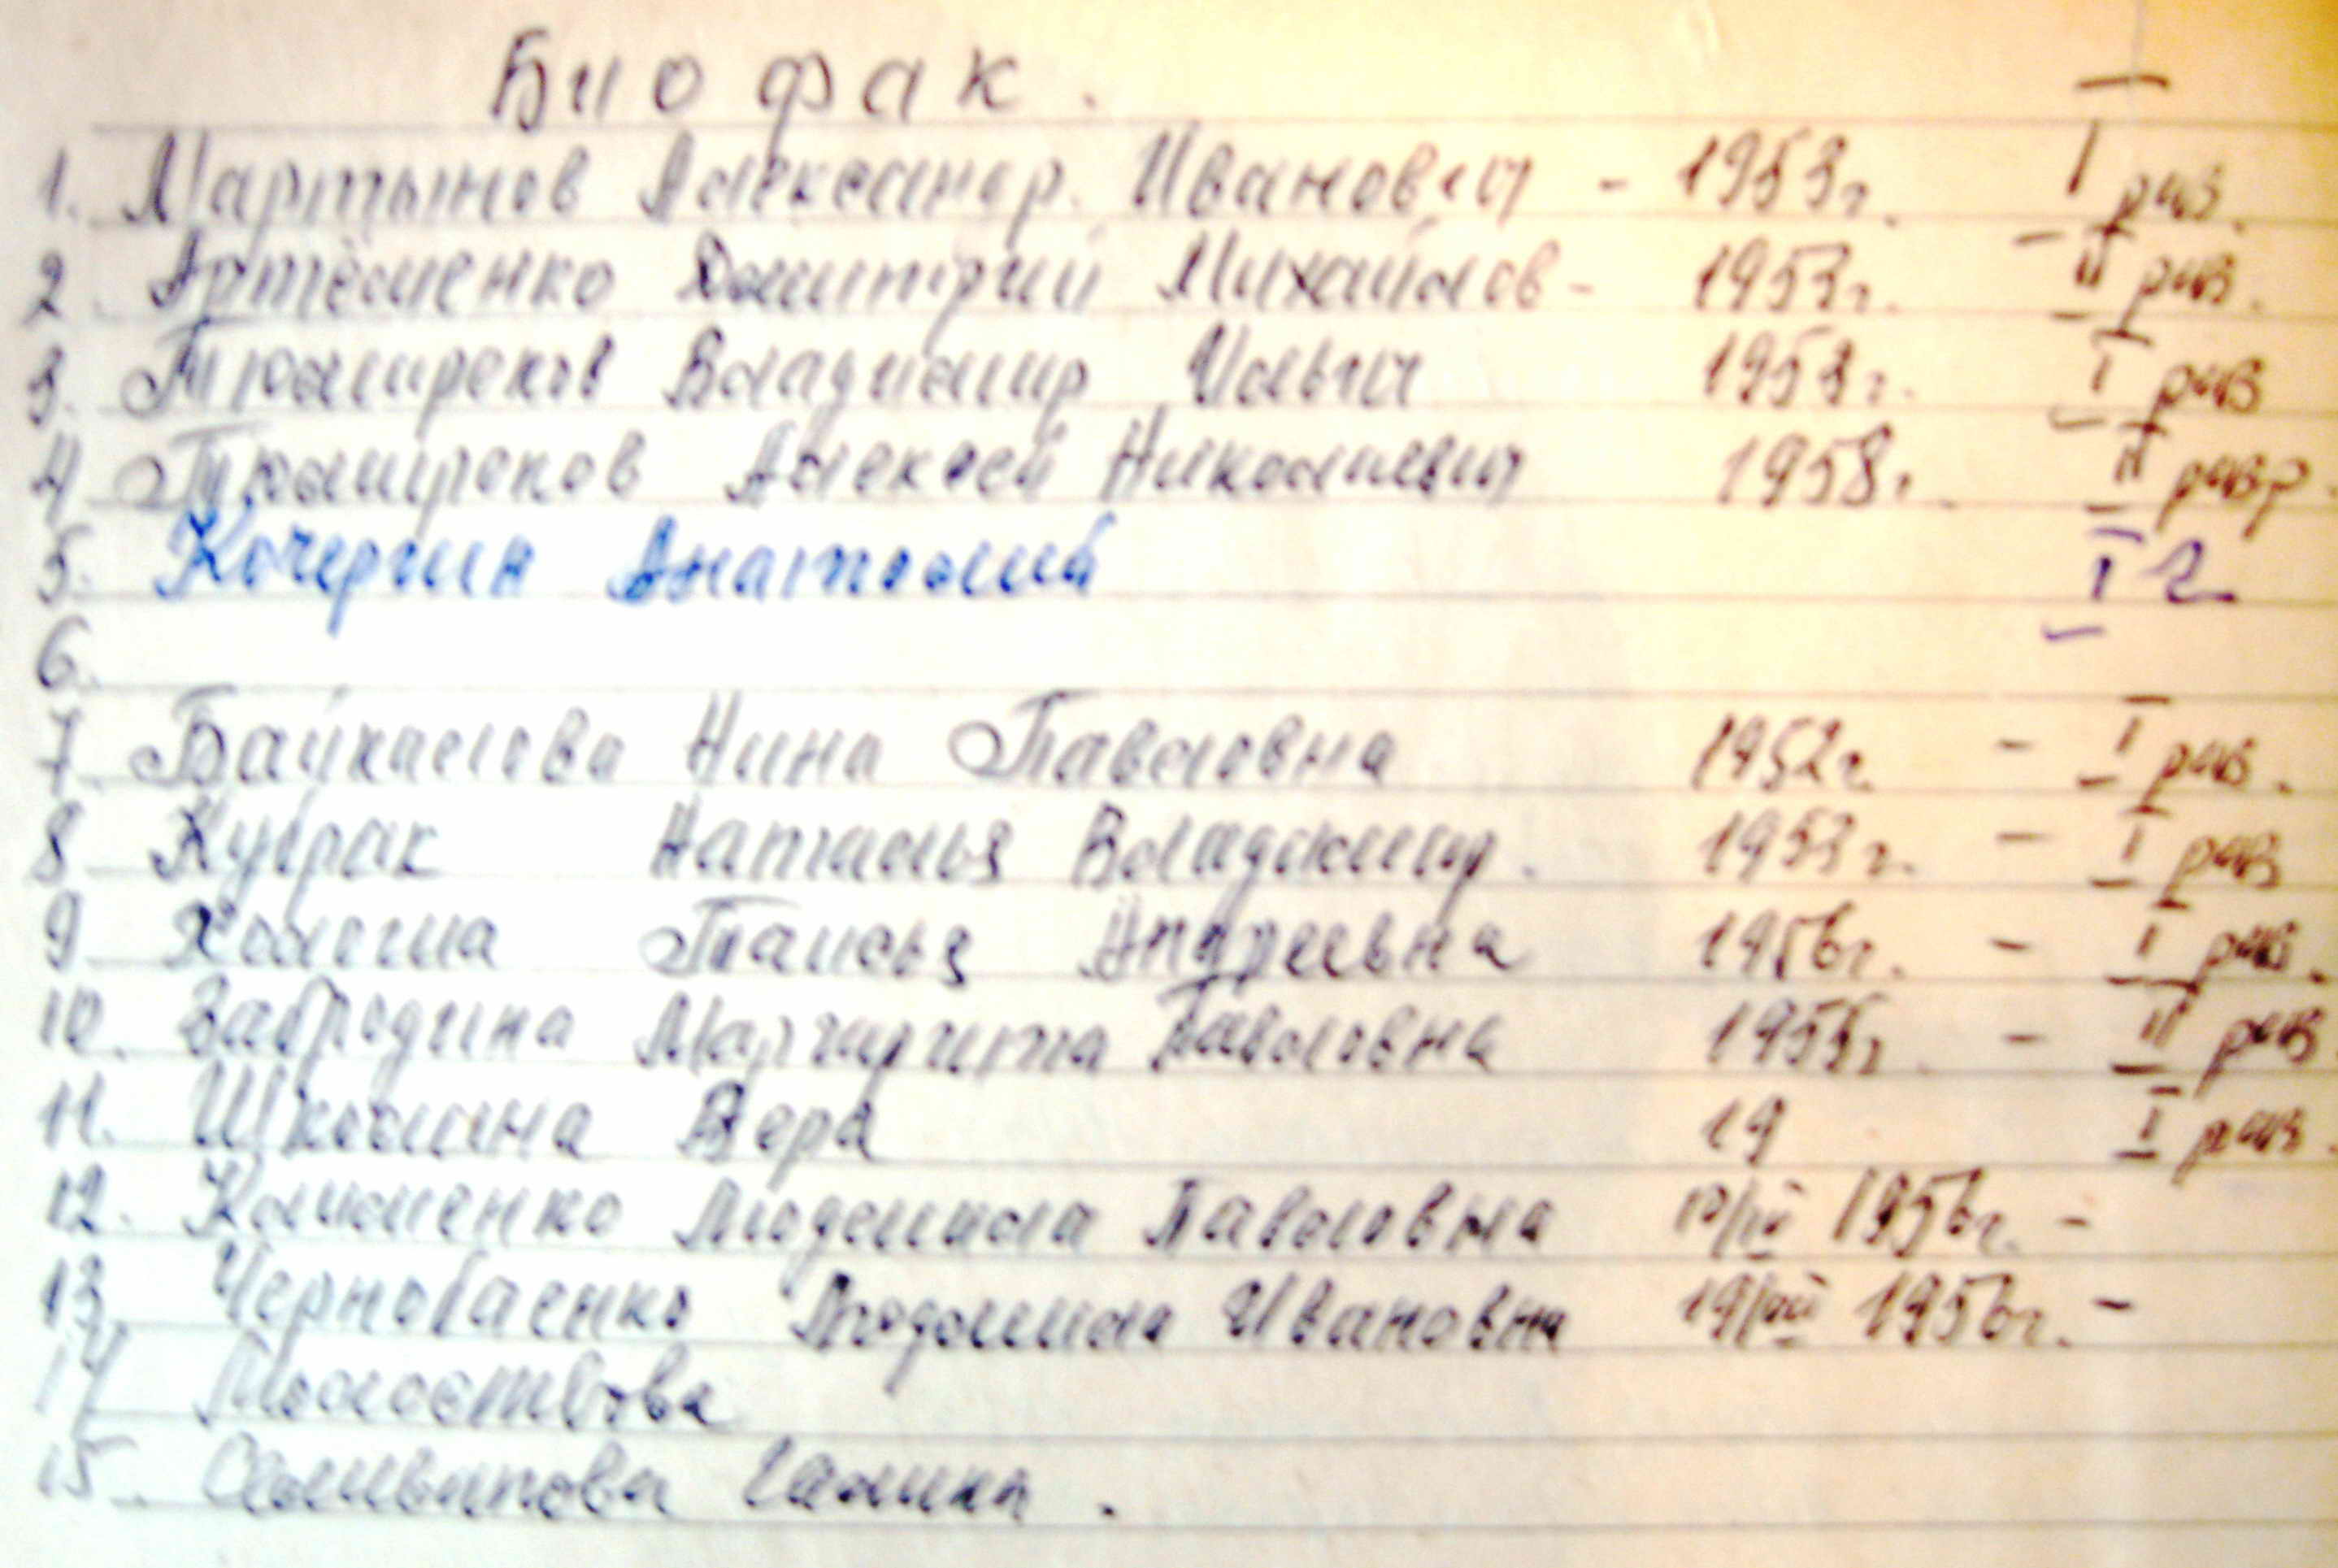 Биофак.
1. Мартынов Александр. Иванович - 1953г. I раз.
2. Артёменко Дмитрий Михайлов- 1953г. II раз.
3. Владимир Ильич 1953г. I раз
4 Алексей Николаевич 1958г. II разр.
5. Кочергин Анатолий I
6.
7. Нина Павловна 1952г. - I раз.
8 Кубрак Наталья Владимир. 1953г. - I раз
9 Таисья Андреевна 1956г. - I раз.
10. Забродина Маргарита Павловна 1955г. - II раз
11. Школина Вера 19 I раз.
12. Клименко Людмила Павловна 1956г. -
13. Чернобаенко Людмила Ивановна 1956г. -
14
15. Галина.